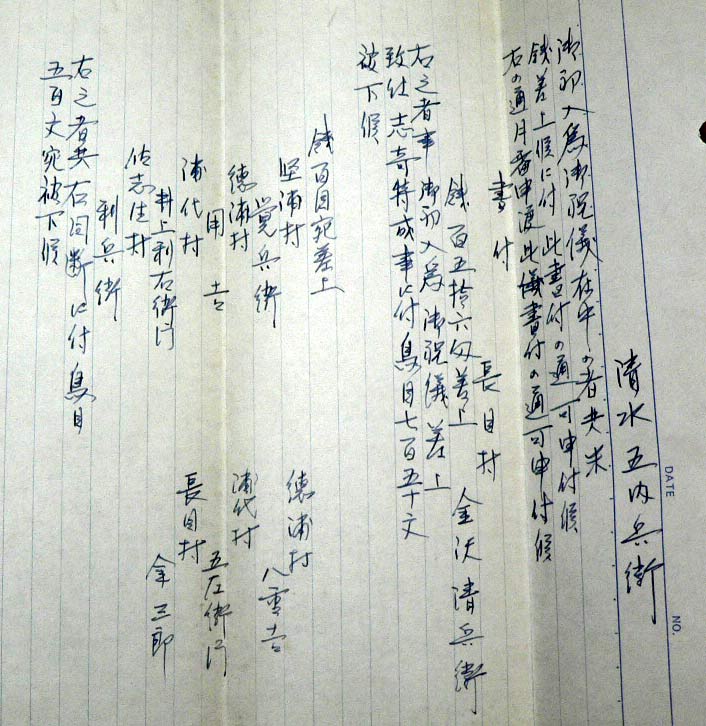 清水五内兵衛
御初入為御祝儀在中の者共米
銭差上候に付此書付の通可申付候
右の通月番申渡此儀書付の通可申付候
書付
長目村
銭百五拾六匁差上 金沢清兵衛
右之者事御初入為御祝儀差上
致仕志奇特成事に付鳥目七百五十文
被下候
銭百目宛差上
堅浦村
覚兵衛
徳浦村
八雲吉
徳浦村
用吉
浦代村
五左衛門
浦代村
井上利右衛門
長目村
金三郎
佐志生村
利兵衛
右之者共右同断に付鳥目
五百文宛被下候
DATE
NO.